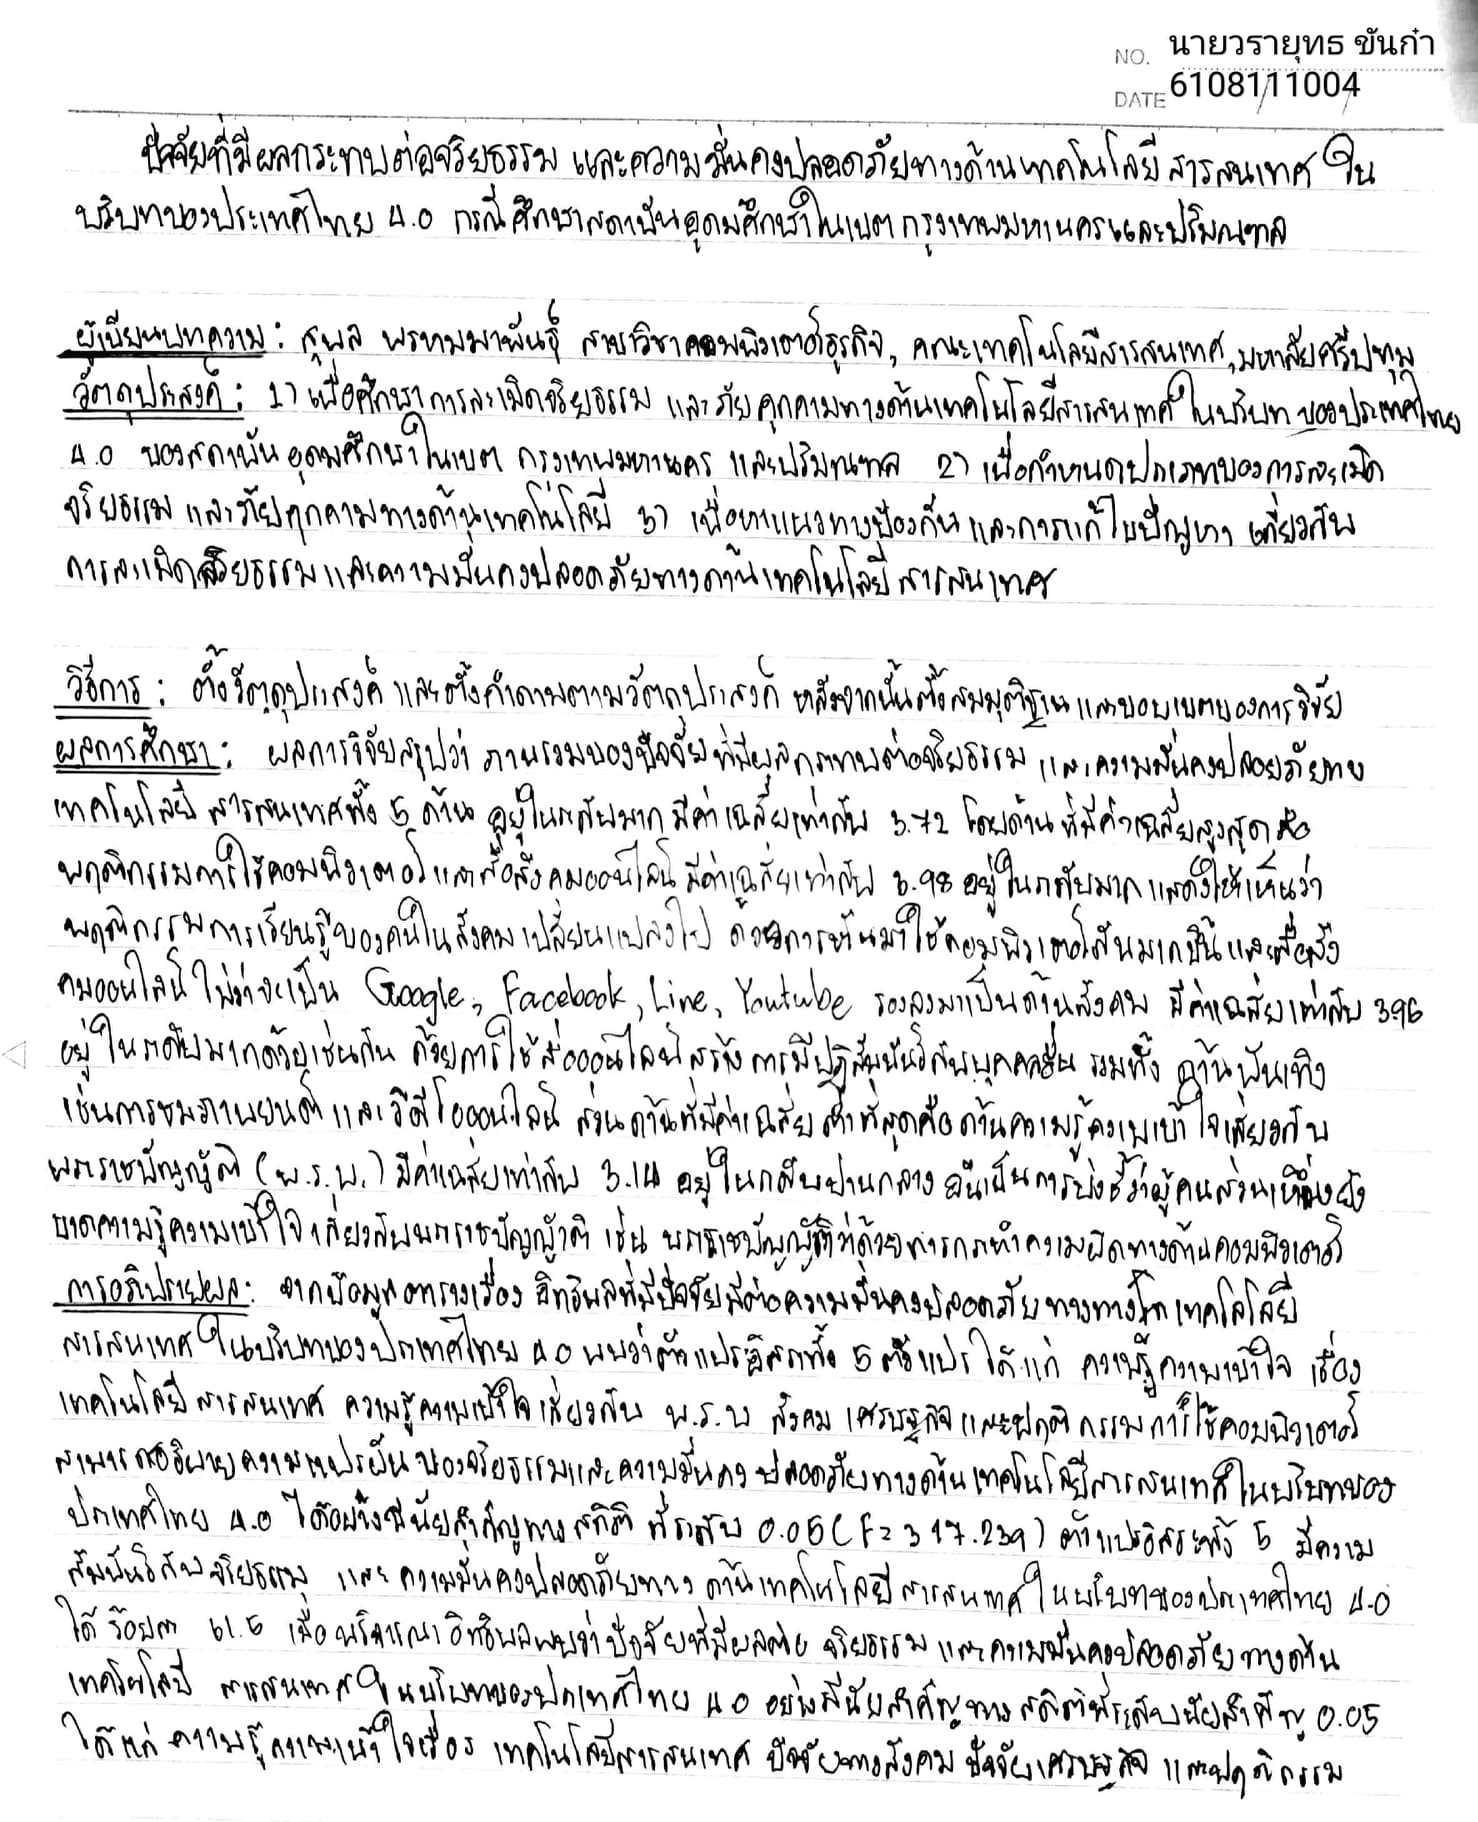 NO. นายวรายุทธ ขันก๋า
DATE 6108111004
ปัจจัยที่มีผลกระทบต่อจริยธรรม และความมั่นคงปลอดภัยทางด้านเทคโนโลยีสารสนเทศ ใน
บริบทของประเทศไทย 4.0 กรณีศึกษาสถาบันอุดมศึกษาในเขตกรุงเทพมหานครและปริมณฑล
ผู้เขียนบทความ : สุพล พรหมมาพันธุ์ สาขาวิชาคอมพิวเตอร์ธุรกิจ, คณะเทคโนโลยีสารสนเทศ, มหาลัยศรีปทุม
วัตถุประสงค์ : 1) เพื่อศึกษาการละเมิดจริยธรรม และภัยคุกคามทางด้านเทคโนโลยีสารสนเทศ ในบริบทของประเทศไทย
4.0 ของสถาบันอุดมศึกษาในเขต กรุงเทพมหานคร และปริมณฑล 2) เพื่อกำหนดประเภทของการละเมิด
จริยธรรม และภัยคุกคามทางด้านเทคโนโลยี 3) เพื่อหาแนวทางป้องกันและการแก้ไขปัญหา เกี่ยวกับ
การละเมิดจริยธรรมและความมั่นคงปลอดภัยทางด้านเทคโนโลยีสารสนเทศ
วิธีการ : ตั้งวัตถุประสงค์ และตั้งคำถามตามวัตถุประสงค์ หลังจากนั้นตั้งสมมุติฐานและขอบเขตของการวิจัย
ผลการศึกษา : ผลการวิจัยสรุปว่า ภาพรวมของปัจจัยที่มีผลกระทบต่อจริยธรรม และความมั่นคงปลอยภัยทาง
เทคโนโลยี สารสนเทศทั้ง 5 ด้าน อยู่ในระดับมาก มีค่าเฉลี่ยเท่ากับ 3.72 โดยด้านที่มีค่าเฉลี่ยสูงสุด คือ
พฤติกรรมการใช้คอมพิวเตอร์และสื่อสังคมออนไลน์ มีค่าเฉลี่ยเท่ากับ 3.98 อยู่ในระดับมาก แสดงให้เห็นว่า
พฤติกรรมการเรียนรู้ของคนในสังคมเปลี่ยนแปลงไป ด้วยการหันมาใช้คอมพิวเตอร์กันมากขึ้นและสื่อสัง
คมออนไลน์ ไม่ว่าจะเป็น Google, Facebook, Line, Youtube รองลงมาเป็นด้านสังคม มีค่าเฉลี่ยเท่ากับ 3.96
อยู่ในระดับมากด้วยเช่นกัน ด้วยการใช้สื่อออนไลน์สร้างการมีปฏิสัมพันธ์กับบุคคลอื่น รวมทั้ง ด้านบันเทิง
เช่นการชมภาพยนต์และวีดีโอออนไลน์ ส่วนด้านที่มีค่าเฉลี่ยต่ำที่สุดคือด้านความรู้ความเข้าใจเกี่ยวกับ
พระราชบัญญัติ (พ.ร.บ.) มีค่าเฉลี่ยเท่ากับ 3.14 อยู่ในระดับปานกลาง อันเป็นการบ่งชี้ว่าผู้คนส่วนยัง
ขาดความรู้ความเข้าใจเกี่ยวกับพระราชบัญญัติ เช่น พระราชบัญญัติว่าด้วยการกระทำความผิดทางด้านคอมพิวเตอร์
การอภิปรายผล : จากข้อมูลตารางเรื่อง อิทธิพลที่มีปัจจัยมีต่อความมั่นคงปลอดภัยทางทาง เทคโลโลยี
สารสนเทศ ในบริบทของประเทศไทย 4.0 พบว่าตัวแปรอิสระทั้ง 5 ตัวแปร ได้แก่ ความรู้ความเข้าใจ เรื่อง
เทคโนโลยีสารสนเทศ ความรู้ความเข้าใจเกี่ยวกับ พ.ร.บ สังคม เศรษฐกิจและพฤติกรรมการใช้คอมพิวเตอร์
สามารถอธิบายความแปรผันของจริยธรรมและความมั่นคงปลอดภัยทางด้านเทคโนโลยีสารสนเทศในบริบทของ
ประเทศไทย 4.0 ได้อย่างมีนัยสำคัญทางสถิติ ที่ระดับ 0.05 (F= 317.239) ตัวแปรอิสระทั้ง 5 มีความ
สัมพันธ์กับจริยธรรม และ ความมั่นคงปลอดภัยทาง ด้านเทคโนโลยีสารสนเทศ ในบริบทของประเทศไทย 4.0
ได้ ร้อยละ 61.5 เมื่อพิจารณาอิทธิพลพบว่าปัจจัยที่มีผลต่อ จริยธรรม และความมั่นคงปลอดภัยทางด้าน
เทคโนโลยี สารสนเทศ ในบริบทของประเทศไทย 4.0 อย่างมีนัยสำคัญทางสถิติที่ระดับนัยสำคัญ 0.05
ได้แก่ ความรู้ความเข้าใจเรื่อง เทคโนโลยีสารสนเทศ ปัจจัยทางสังคม ปัจจัยเศรษฐกิจ และพฤติกรรม